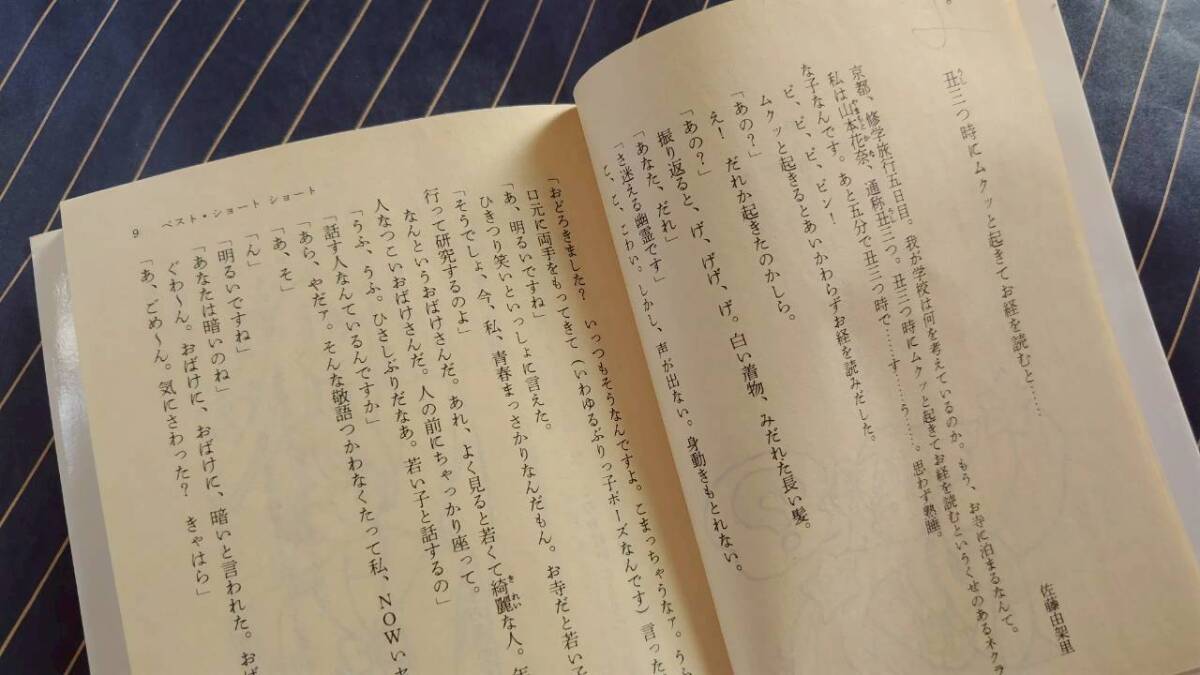 丑三つ時にムクッと起きてお経を読むと……
佐藤由架里
京都、修学旅行五日目。我が学校は何を考えているのか。もう、お寺に泊まるなんて。
私は山本花奈、通称丑三つ。丑三つ時にムクッと起きてお経を読むというくせのあるネクラ
な子なんです。あと五分で丑三つ時で……す……う……。思わず熟睡。
ピ、ピ、ピ、ピン！
ムクッと起きるとあいかわらずお経を読みだした。
「あの？」
え！　だれか起きたのかしら。
「あの？」
振り返ると、げ、げげ、げ。白い着物、みだれた長い髪。
「あなた、だれ」
「さ迷える幽霊です」
こ、こ、こわい。しかし、声が出ない。身動きもとれない。
「おどろきました？　いっつもそうなんですよ。こまっちゃうなァ。うら
口元に両手をもってきて（いわゆるぶりっ子ポーズなんです）言った
「あ、明るいですね」
ひきつり笑いといっしょに言えた。
「そうでしょ、今、私、青春まっさかりなんだもん。お寺だと若いて
行って研究するのよ」
なんというおばけさんだ。あれ、よく見ると若くて綺麗な人。年
人なつこいおばけさんだ。人の前にちゃっかり座って。
「うふ、うふ。ひさしぶりだなあ。若い子と話するの」
「話す人なんているんですか」
「あら、やだァ。そんな敬語つかわなくたって私、NOWいヤ
「あ、そ」
「ん」
「明るいですね」
「あなたは暗いのね」
ぐわ〜ん。おばけに、おばけに、暗いと言われた。おば
「あ、ごめ〜ん。気にさわった？　きゃはら」
9　ベスト・ショート ショート